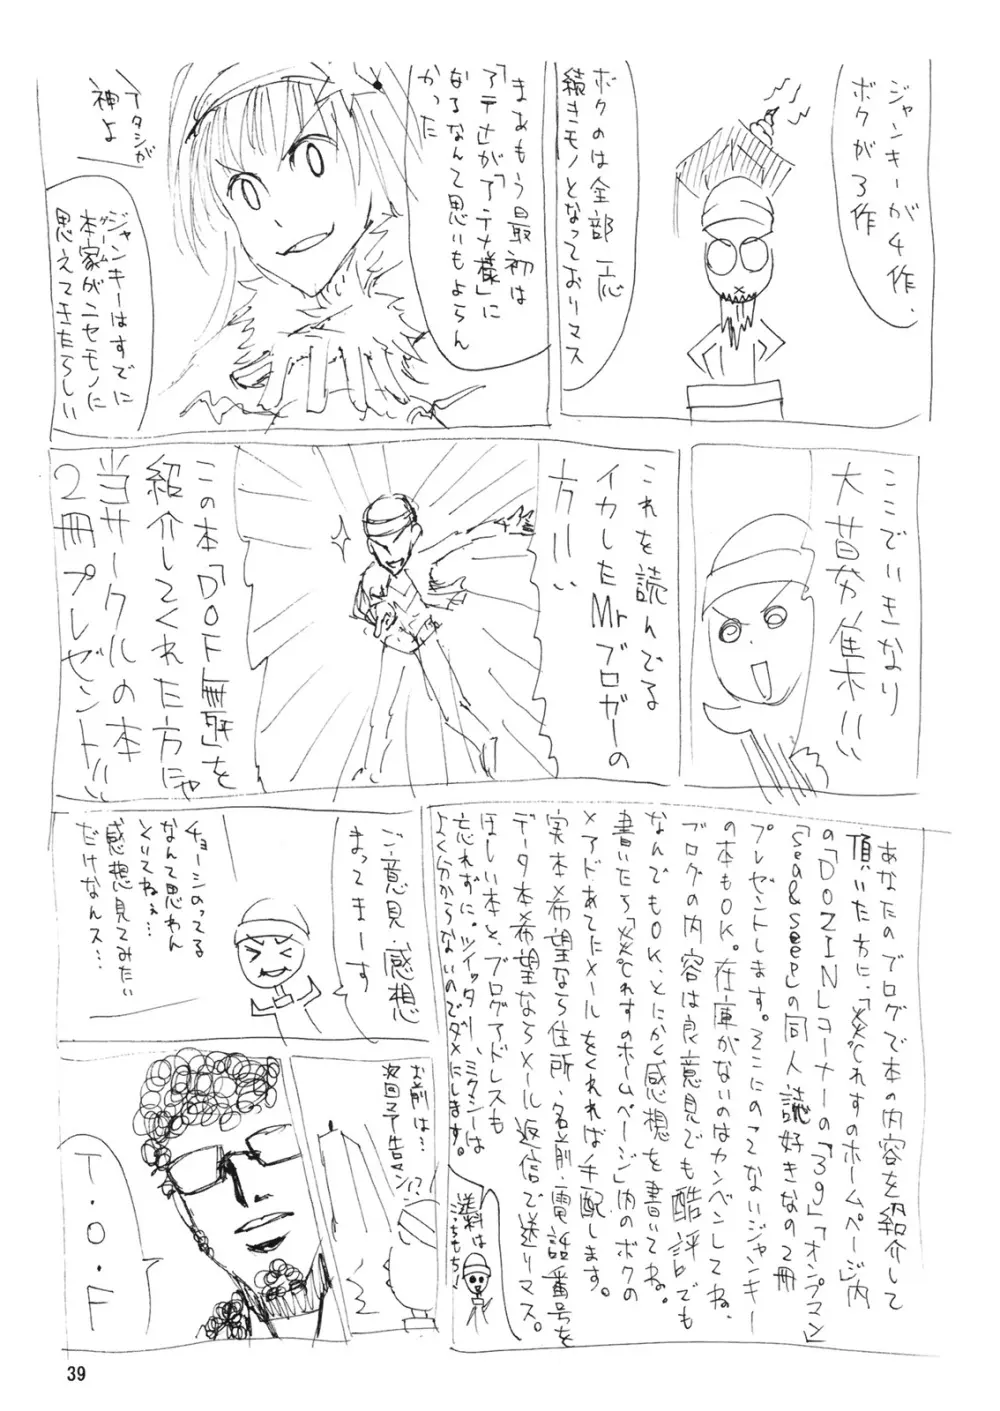 ジャンキーが4作、
ボクが3作
ボクのは全部一応
続きモノとなっておりマス
まあもう最初は
「アテナ」が「アテナ様」に
なるなんて思いもよらん
かった
アタシが
神よ
ジャンキーはすでに
本家がニセモノに
ゲーム
思えてきたらしい
ここでいきなり
大募集!!
これを読んでる
イカしたMrブロガーの
方!!
この本「DOF無双」を
紹介してくれた方にゃ
当サークルの本
2冊プレゼント!!
あなたのブログで本の内容を紹介して
頂いた方に、「炎じれすのホームページ」内
の「DOZIN」コーナーの「39」「オンプマン」
「Sea&See」の同人誌好きなの2冊
プレゼントします。そこにのってないジャンキー
の本もOK。在庫がないのはカンベンしてね。
ブログの内容は良意見でも酷評でも
なんでもOK、とにかく感想を書いてね。
書いたら「炎じれすのホームページ」内のボクの
メアドあてにメールをくれれば手配します。
実本希望なら住所・名前・電話番号を
データ本希望ならメール返信で送りマス。
ほしい本と、ブログアドレスも
忘れずに。ツイッター、ミクシーは
よく分からないのでダメにします。
送料は
こっちもち!
ご意見・感想
まってまーす
チョーシのってる
なんて思わん
といてねぇ…
感想見てみたい
だけなんス…
お前は…
次回予告マン!?
T・O・F
39